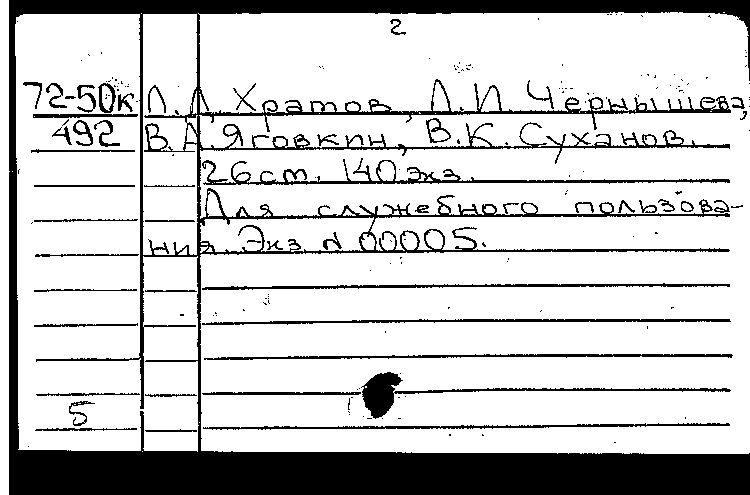 2
72-50к Л.Л. Хратов, Л.И. Чернышева,
492 В.А. Яговкин, В.К. Суханов.
26 ст. 140 экз.
Для служебного пользова-
ния. Экз № 00005.
5